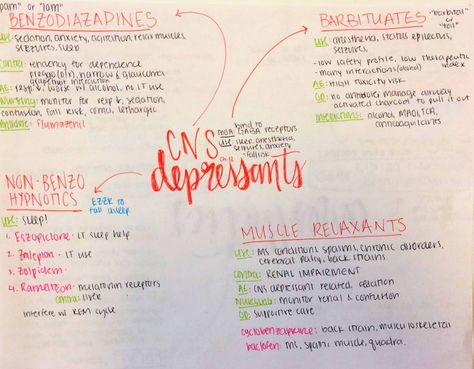 "pam" or "lam"
BENZODIAZAPINES
use: sedation, anxiety, agitation, relax muscles,
seizures, sleep
contra: tendency for dependence
preggo (D/x), narrow & glaucoma
grapefruit interaction
AE: resp ↓, worse w/ alcohol, no LT use
Nursing: monitor for resp ↓, sedation,
confusion, fall risk, coma, lethargic
Antidote: Flumazenil
BARBITUATES
"barbital"
or
"tal"
use: anesthesia, status epilectus,
seizures.
-low safety profile, low therapeutic
index
-many interactions (alcohol)
AE: HIGH toxicity risk
OD: no antidote; manage airway
activated charcoal to pull it out
Interactions: alcohol, MAOI, TCA,
anticoagulants
CNS
depressants
Ch. 12
MOA: bind to
GABA receptors
use: sleep, anesthesia,
seizures, anxiety
*fall risk
NON-BENZO
HYPNOTICS
EZZR to
fall asleep
use: sleep!
1. Eszopiclone: LT sleep help
2. Zaleplon: LT use
3. Zolpidem:
4. Ramelteon: melatonin receptors
contra: liver
interfere w/ REM cycle
MUSCLE RELAXANTS
use: MS conditions, spasms, chronic disorders,
cerebral palsy, back strains
contra: RENAL IMPAIRMENT
AE: CNS depressant related, sedation
Nursing: monitor renal & confusion
OD: supportive care
cyclobenzaprine: back strain, musculoskeletal
baclofen: ms, spastic muscle, quadra.